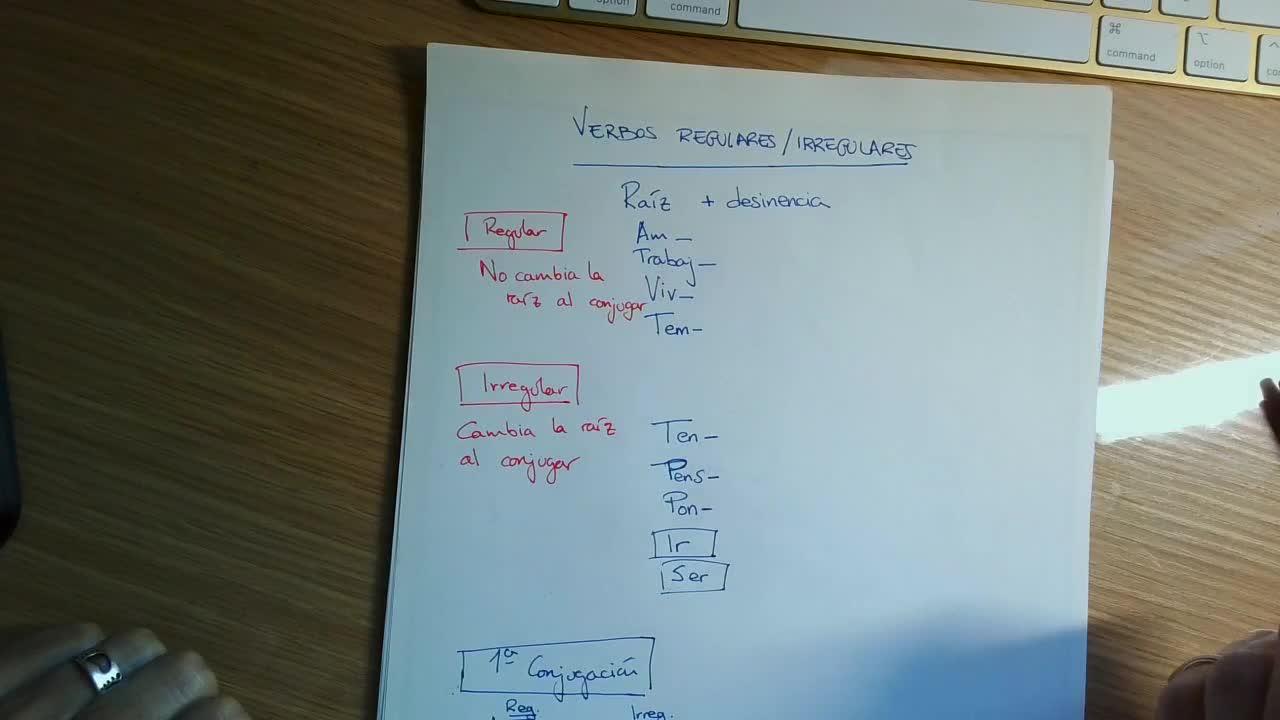 option
command
⌘
command
⌥
option
VERBOS REGULARES/IRREGULARES
Raíz + desinencia
Regular
Am_
No cambia la
raíz al conjugar
Trabaj_
Viv_
Tem-
Irregular
Cambia la raíz
al conjugar
Ten-
Pens-
Pon-
Ir
Ser
1ª Conjugación
Reg. Irreg.